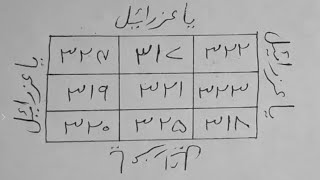 یا عزرائیل
یا عزرائیل
یا عزرائیل
۳۲۴ ۳۱۷ ۳۲۲
۳۱۹ ۳۲۱ ۳۲۳
۳۲۰ ۳۲۵ ۳۱۸